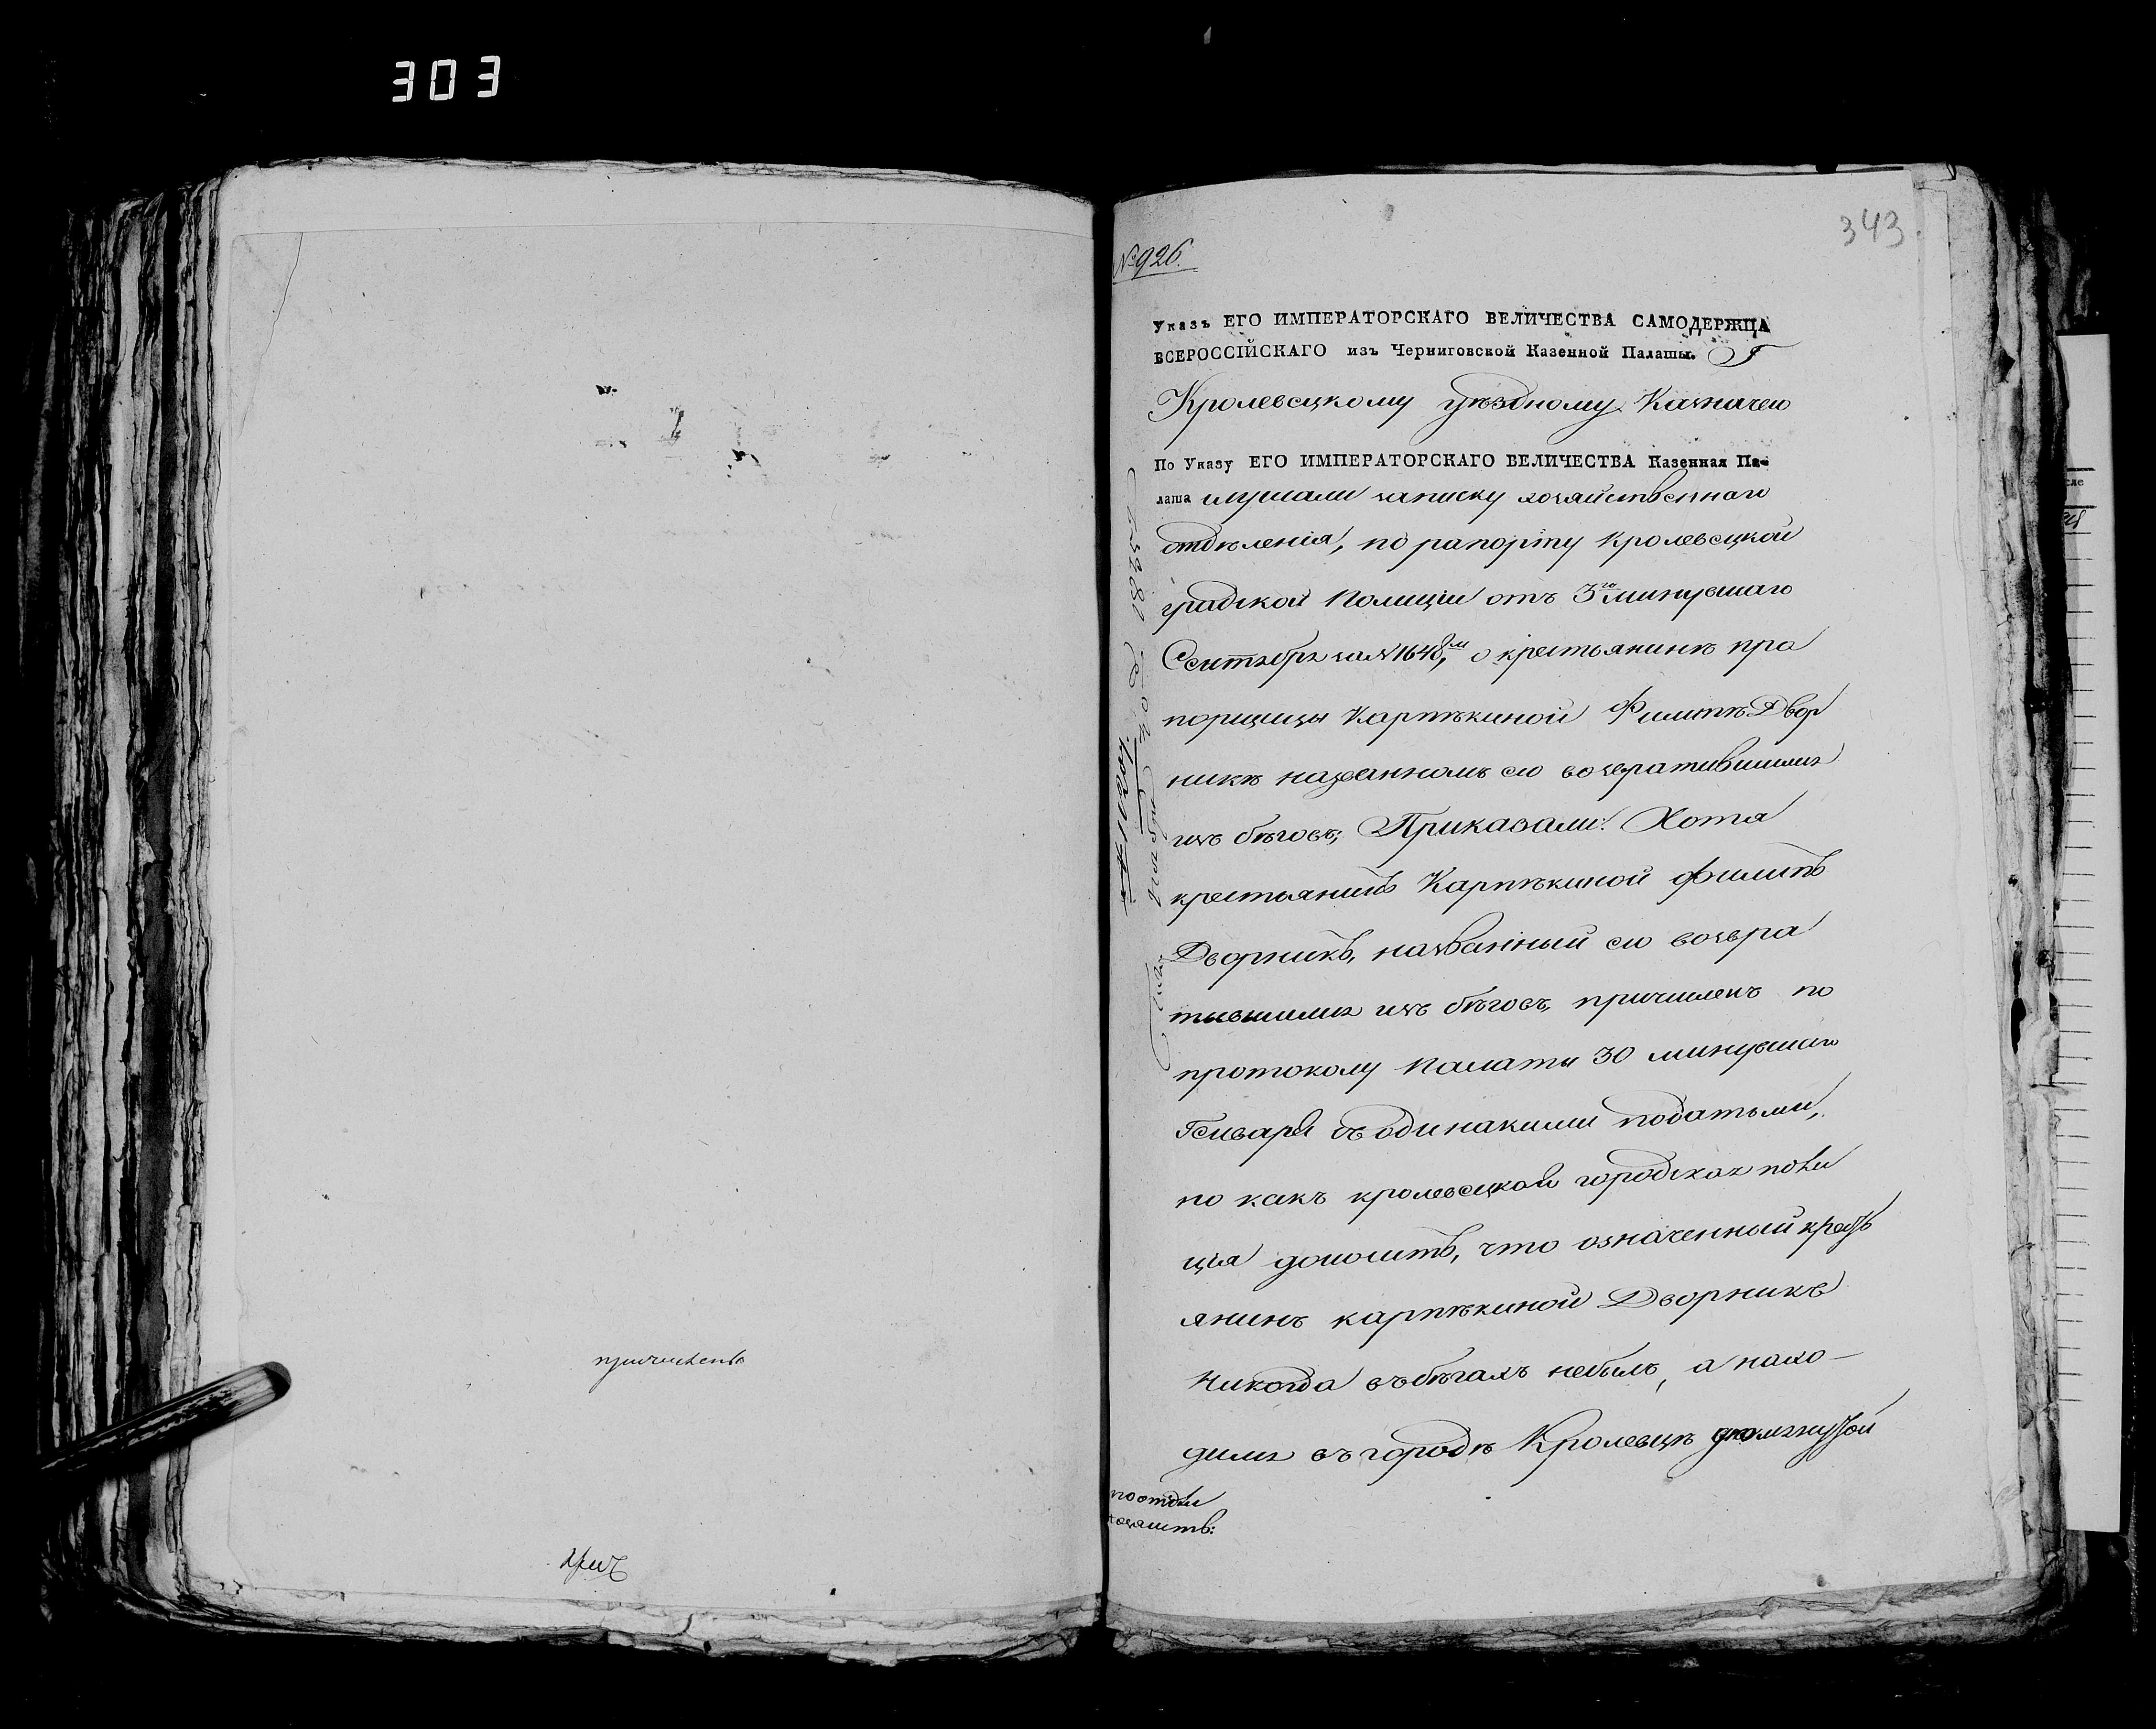 303
причисленъ
прич
343.
№ 926.
Указъ ЕГО ИМПЕРАТОРСКАГО ВЕЛИЧЕСТВА САМОДЕРЖЦА
ВСЕРОССІЙСКАГО изъ Черниговской Казенной Палаты. Г
Кролевецкому уѣздному Казначею
По Указу ЕГО ИМПЕРАТОРСКАГО ВЕЛИЧЕСТВА Казенная Па-
лата слушали записку хозяйственнаго
отдѣленія, по рапорту Кролевецкой
градской Полиціи отъ 3го минувшаго
Сентября за № 1648м, о крестьянинѣ пра
порщицы Карпѣкиной Филипѣ Двор
никѣ названномъ ею возвратившимся
изъ бѣговъ; Приказали: Хотя
крестьянинъ Карпѣкиной Филипъ
Дворникъ, названный ею возвра
тившимся изъ бѣговъ, причисленъ по
протоколу Палаты 30 минувшаго
Генваря съ одинакими податьми,
но какъ кролевецкая городская поли
ція доноситъ, что означенный кресть
янинъ карпѣкиной Дворникъ
никогда въ бѣгахъ небылъ, а нахо-
дился въ городѣ Кролевцѣ
по отдѣл
хозяйств:
№ 11201.